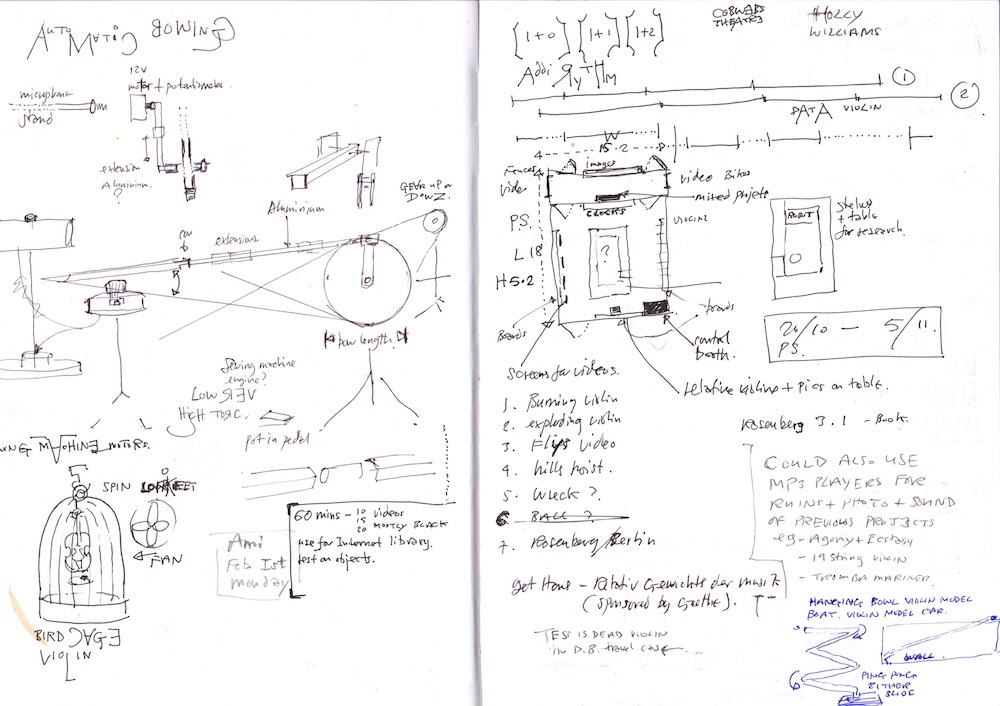 AUTOMATIC BOWING
12V
motor + potentiometer
microphone
stand
extension
Aluminium.
?
Aluminium
GEAR UP or
DOWN
extensions
bow length
Sewing machine
engine?
LOW REV
HIGH TORC.
pot in pedal
SEWING MACHINE MOTORS.
SPIN
FAN
BIRD CAGE
VIOLIN
Ami
Feb 1st
monday
60 mins - 10 videos
15
20 mostly BLACK
use for Internet library.
test on objects.
{1+0} {1+1} {1+2}
COBWEBS
THEATRE
HOLLY
WILLIAMS
Addi RYTHM
1
2
DATA VIOLIN
W
15.2
4
Fences
video
images
video Bikes
mixed projets
CLOCKS
VIOLINS
PS.
L 18
H 5.2
?
Boards
boards
control
booth.
ROBOT
Stelus
+ table
for research.
20/10 - 5/11.
PS.
Screens for videos.
relative violins + pics on table.
1. Burning violin
2. exploding violin
3. Flips video
4. hills hoist.
5. Wreck ?
6 BALL ?
7. Rosenberg/Berlin
Rosenberg 3.1 - Book.
COULD ALSO USE
MP3 PLAYERS FOR
RUINS + PHOTO + SOUND
OF PREVIOUS PROJECTS
eg - Agony + Ecstasy
- 19 string violin
- TROMBA MARINER
get Hans - Relativ Gewichte der musik
(sponsored by Goethe).
TESS IS DEAD VIOLIN
in D.B. travel case
HANGING BOWL VIOLIN MODEL
BOAT. VIOLIN MODEL CAR.
WALL
PING PONG
EITHER
SIDE